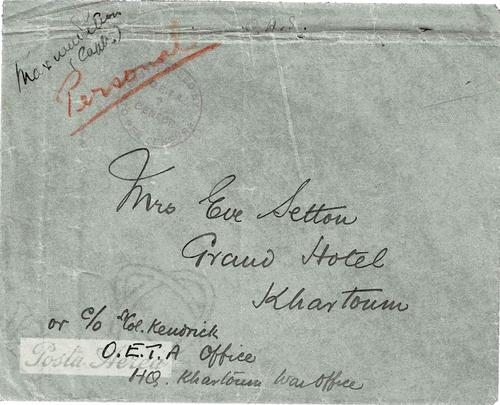 (Capt.)
Personal
Mrs Eve Setton
Grand Hotel
Khartoum
or c/o Col. Kendrick
O.E.T.A Office
HQ. Khartoum War Office
Posta